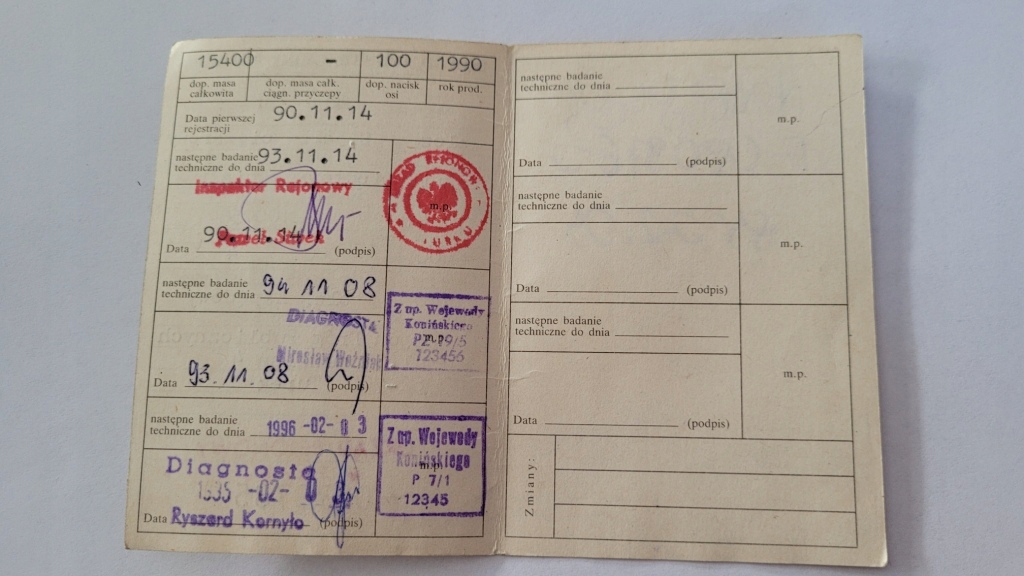 15400 - 100 1990
dop. masa całkowita dop. masa całk. ciągn. przyczepy dop. nacisk osi rok prod.
Data pierwszej rejestracji 90.11.14
następne badanie techniczne do dnia 93.11.14
Inspektor Rejonowy
m.p.
Data 90.11.14 (podpis)
następne badanie
techniczne do dnia 94 11 08
DIAGNOSTA
Mirosław
Z up. Wojewody
Konińskiego
m.p.
123456
Data 93.11.08 (podpis)
następne badanie
techniczne do dnia 1996-02-03
Diagnosta
Z up. Wojewody
Konińskiego
m.p.
P 7/1
12345
Data Ryszard Kornyło (podpis)
następne badanie
techniczne do dnia
m.p.
Data (podpis)
następne badanie
techniczne do dnia
m.p.
Data (podpis)
następne badanie
techniczne do dnia
m.p.
Data (podpis)
Zmiany: